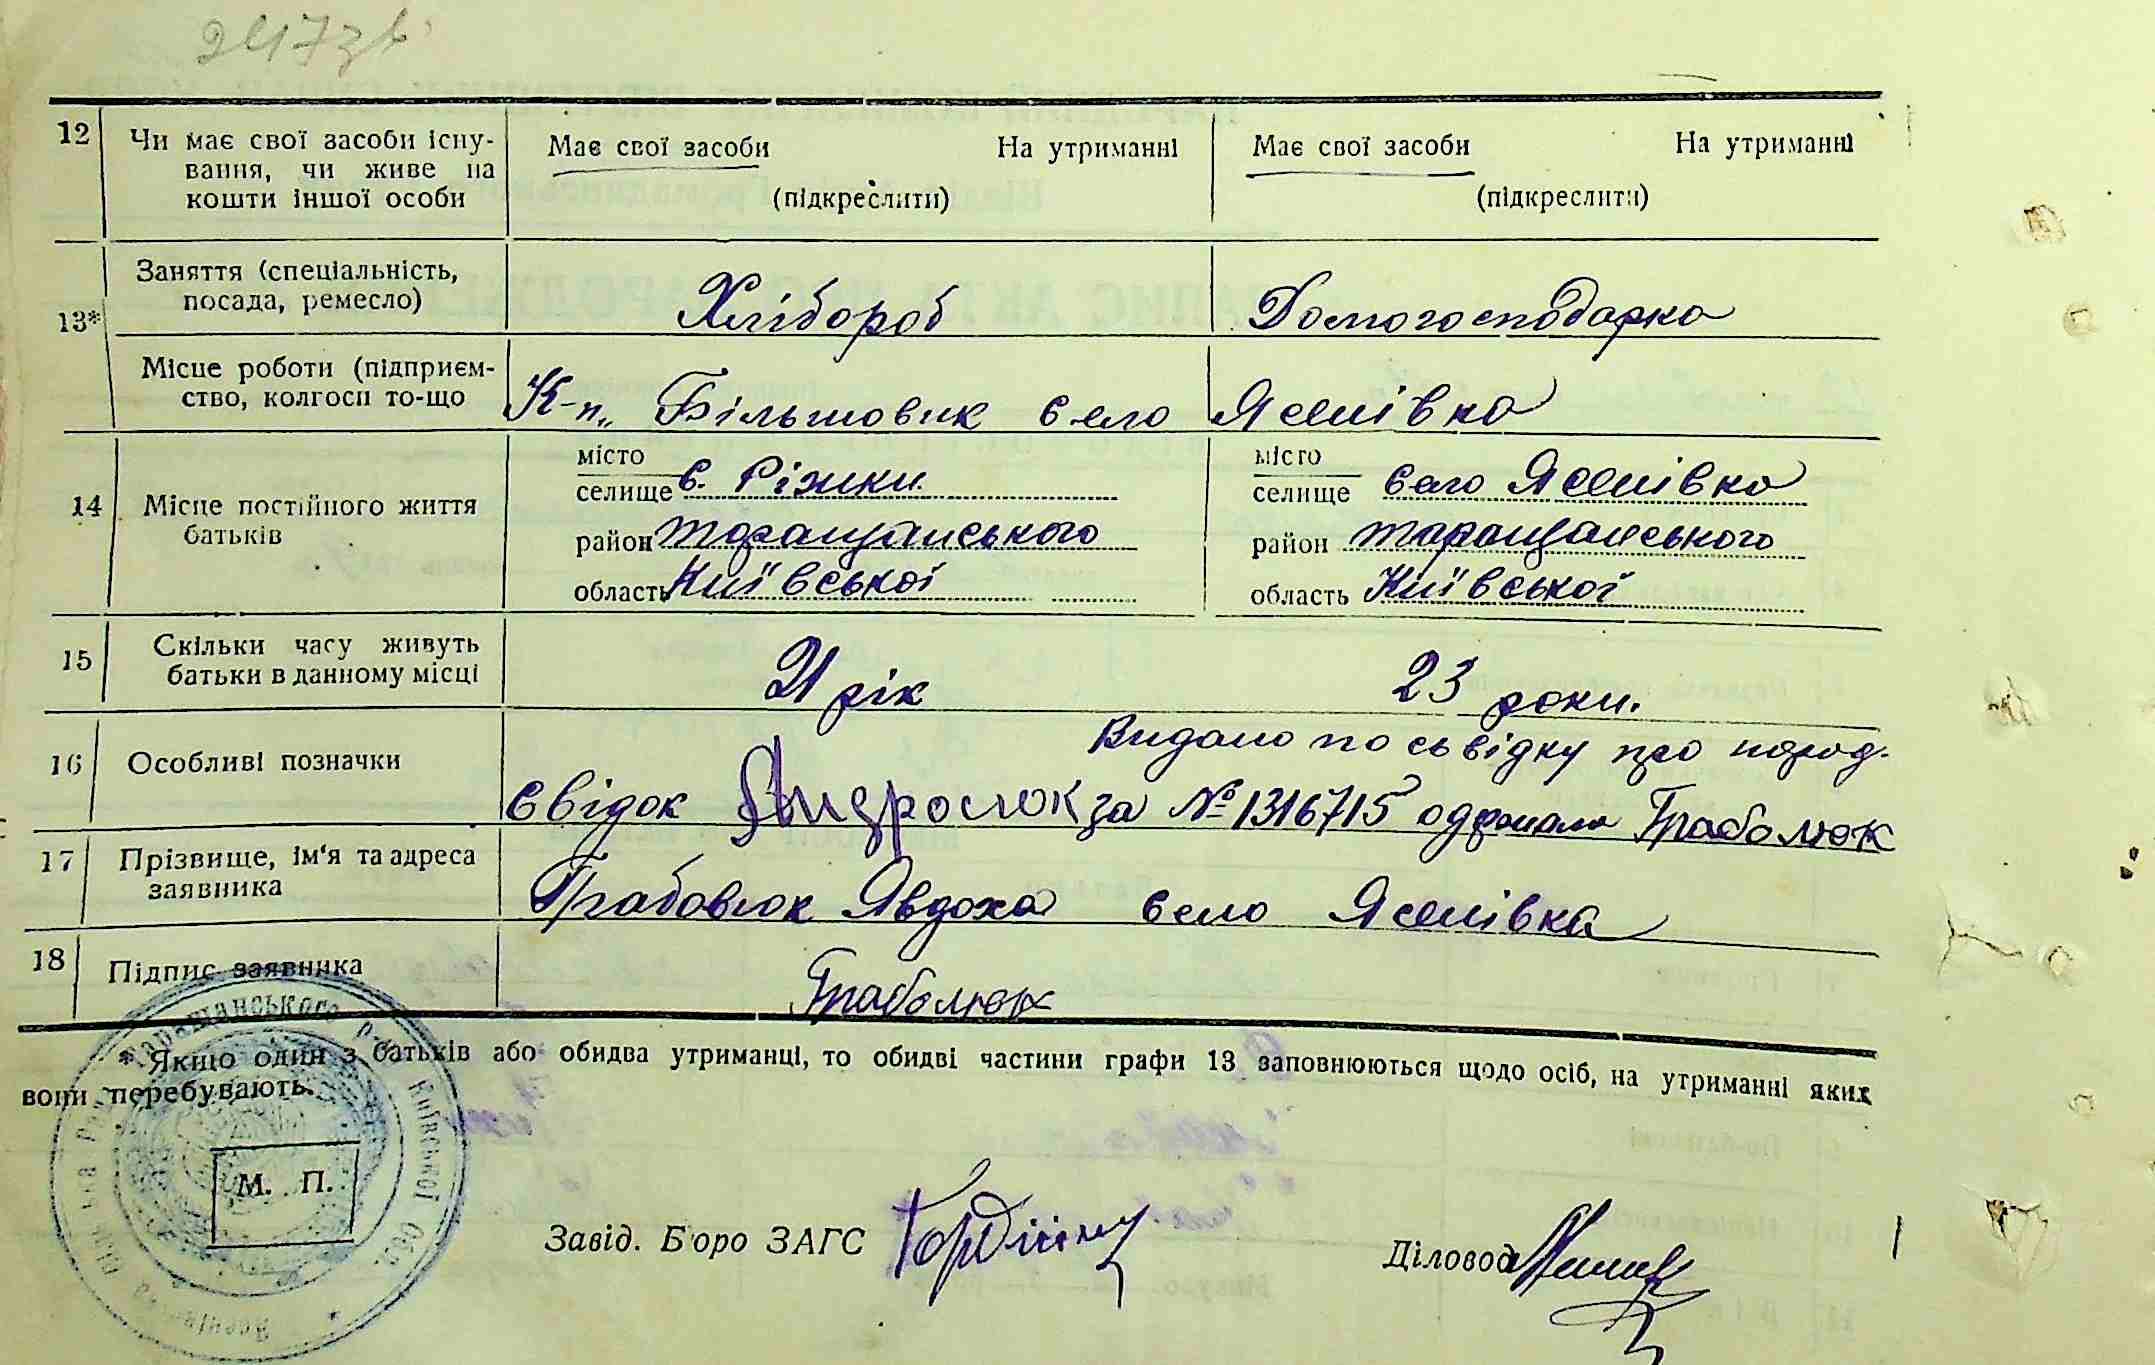 247зв
12 Чи має свої засоби існу-
вання, чи живе на
кошти іншої особи
Має свої засоби На утриманні
(підкреслити)
Має свої засоби На утриманні
(підкреслити)
13* Заняття (спеціальність,
посада, ремесло)
Хлібороб
Домогосподарка
Місце роботи (підприєм-
ство, колгосп то-що
К-п „ Більшовик село Ясенівка
14 Місце постійного життя
батьків
місто
селище с. Ріжки
район таращанського
область Київської
місто
селище село Ясенівка
район таращанського
область Київської
15 Скільки часу живуть
батьки в данному місці
21 рік
23 роки.
16 Особливі позначки
Видано по сьвідку про народ.
Свідок за № 1316715 одержала Граболюк
17 Прізвище, ім'я та адреса
заявника
Явдоха село Ясенівка
18 Підпис заявника
Граболюк
* Якщо один з батьків або обидва утриманці, то обидві частини графи 13 заповнюються щодо осіб, на утриманні яких
вони перебувають.
Таращанського Київської Обл.
М. П.
Завід. Бюро ЗАГС
Діловод